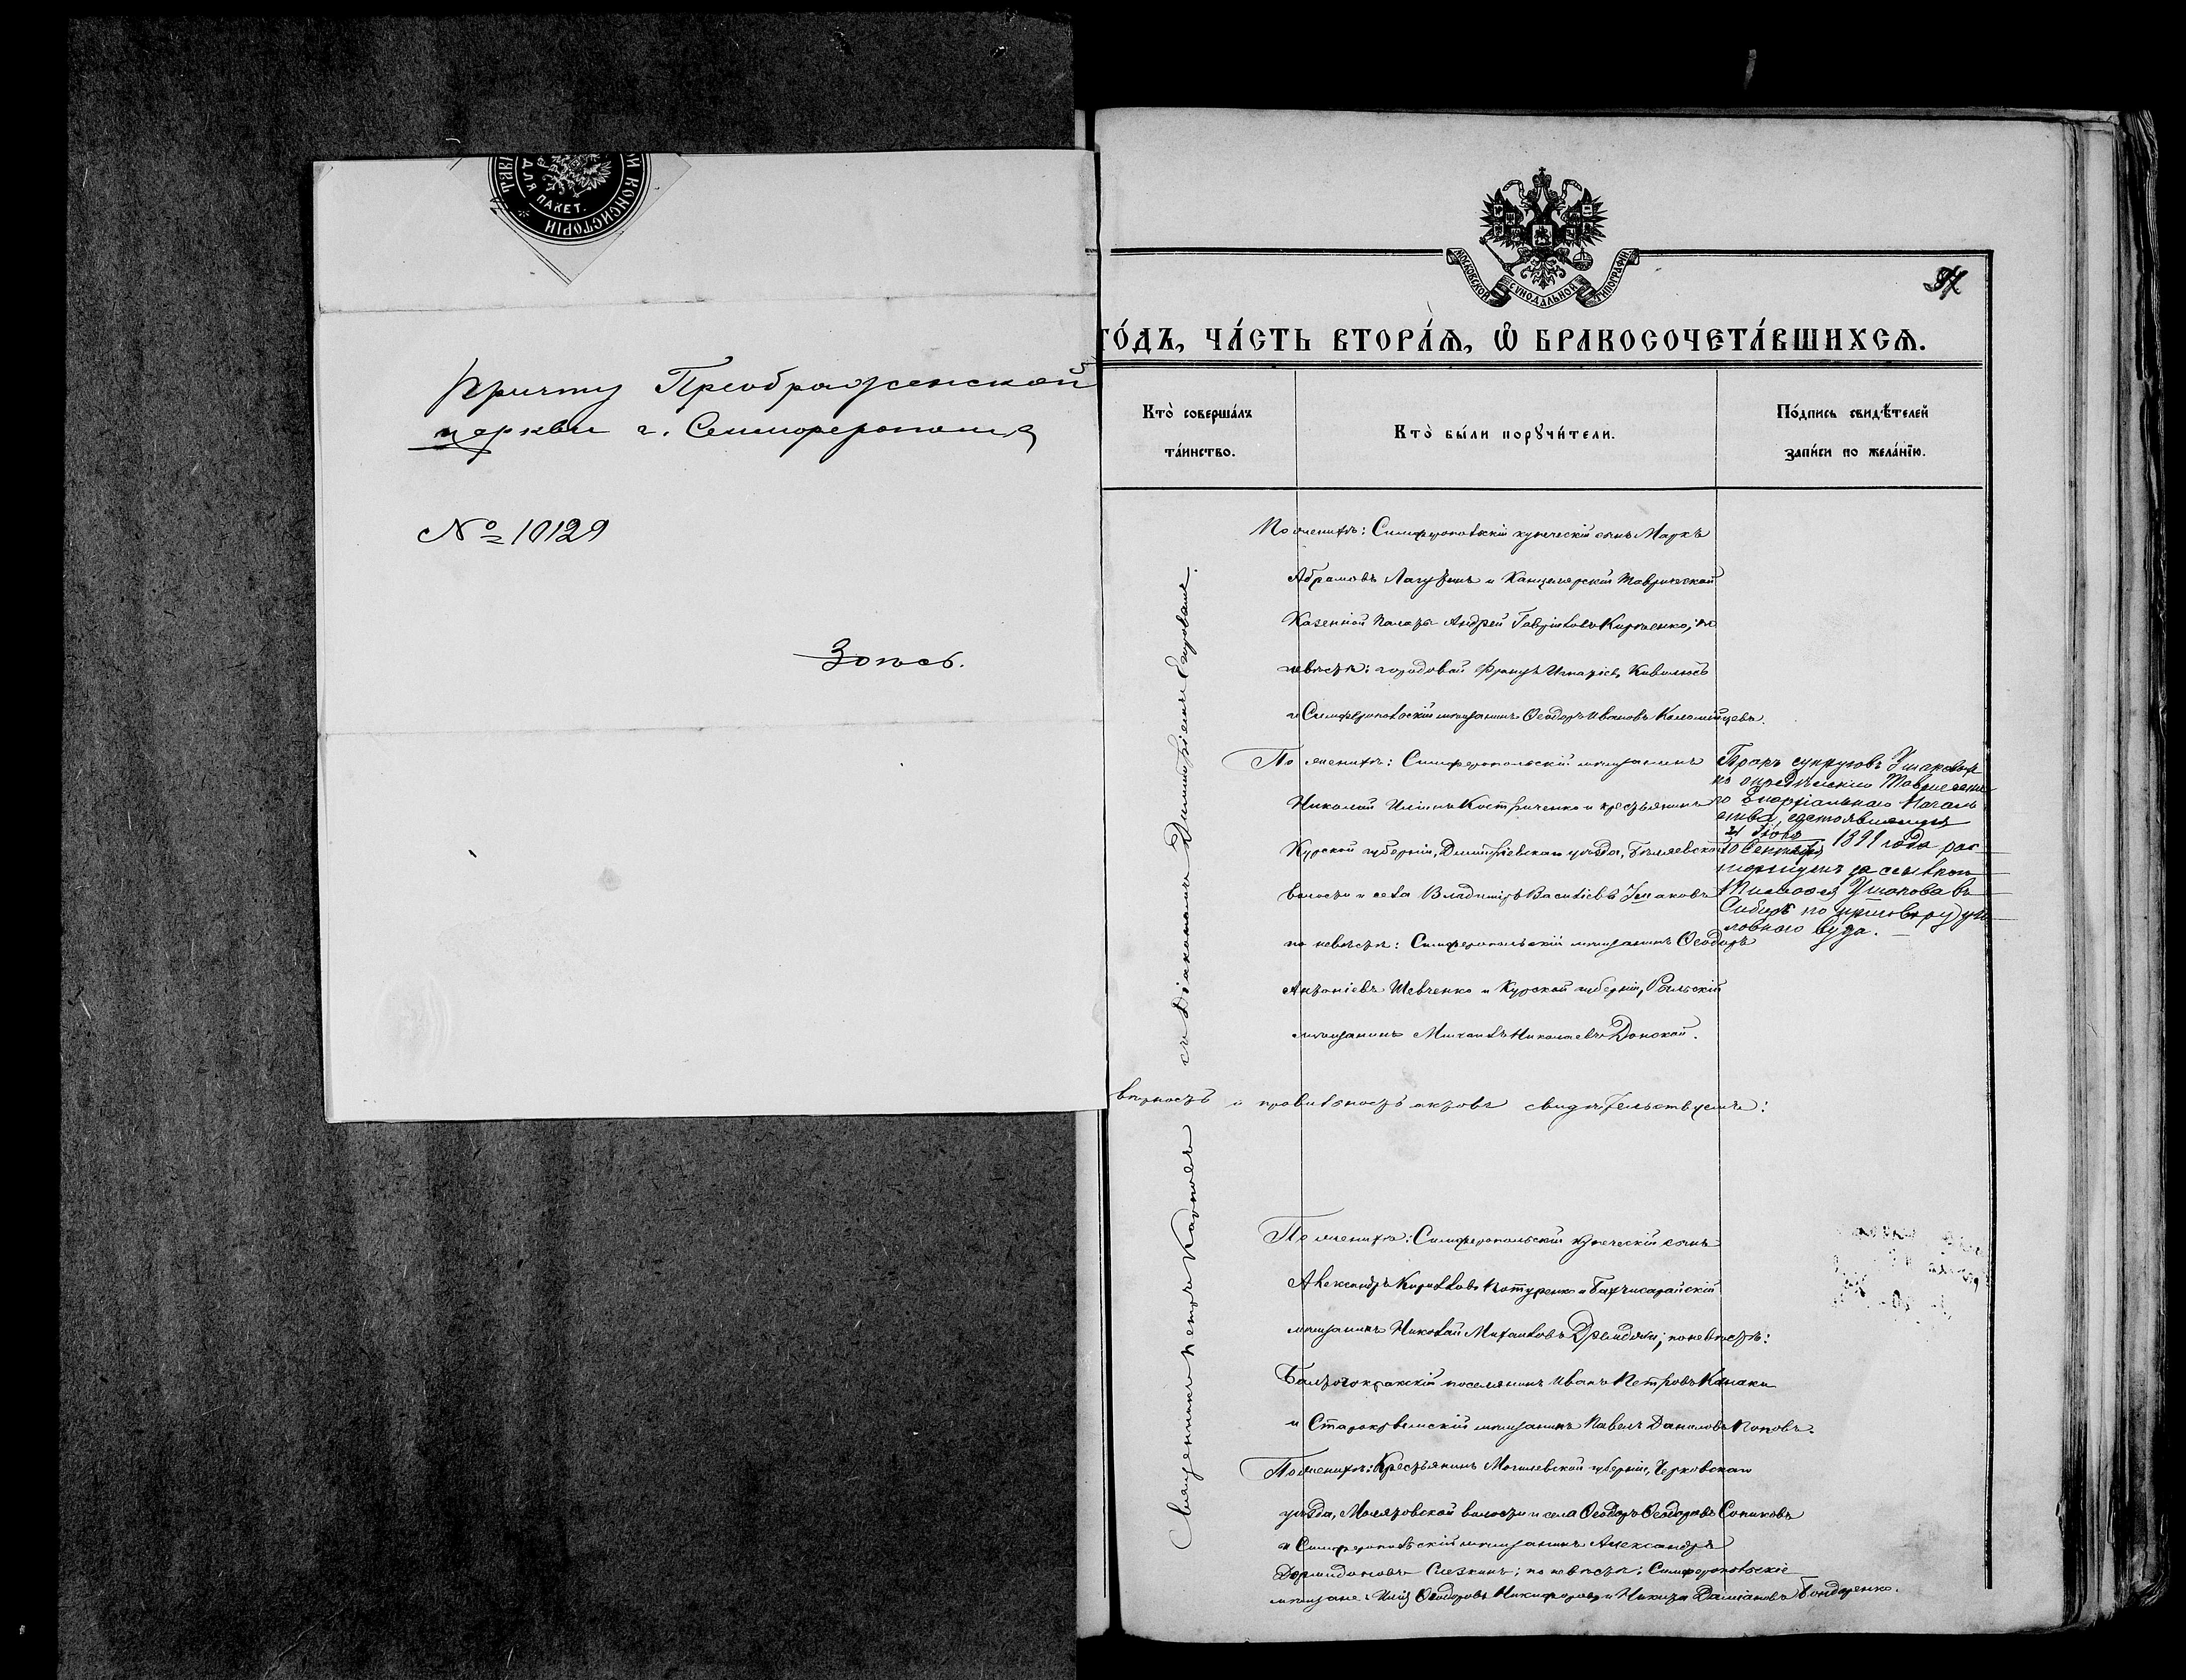 КОНСИСТОРІИ
ДЛЯ ПАКЕТ.
Причту Преображенской
церкви г. Симферополя
№ 10129
Здѣсь.
МОСКОВСКОЙ СѴНОДАЛЬНОЙ ТИПОГРАФІИ
ГО́ДЪ, ЧА́СТЬ ВТОРА́Ѧ, Ѽ БРАКОСОЧЕТА́ВШИХСѦ.
Кто̀ соверша́лъ
та́инство.
Кто̀ бы́ли порꙋчи́тели.
По́дпись свидѣ́телей
за́писи по жела́нїю.
Священникъ Петръ Карповъ съ Діакономъ Димитріемъ
По женихѣ: Симферопольскій купеческій сынъ Маркъ
Абрамовъ и Канцелярскій Таврической
Казенной Палаты Андрей Гавріиловъ Кириенко; по
невѣстѣ: городовой Францъ Игнатіевъ
и Симферопольскій мѣщанинъ Ѳеодоръ Ивановъ Коломійцевъ.
По женихѣ: Симферопольскій мѣщанинъ
Николай Иліинъ Костриченко и крестьянинъ
Курской губерніи, Димитріевскаго уѣзда, Бѣляевской
волости и села Владиміръ Василіевъ Ушаковъ
по невѣстѣ: Симферопольскій мѣщанинъ Ѳеодоръ
Антоніевъ Шевченко и Курской губерніи, Рыльскій
мѣщанинъ Михаилъ Николаевъ Донской.
Бракъ супруговъ Ушаковых
по опредѣленію Таврическа
го Епархіальнаго Началь
ства, состоявшемуся
31 Іюля
10 Сентября 1891 года рас
торгнутъ за ссылкою
Ушакова въ
Сибирь по приговору уго
ловнаго суда.
вѣрность и правильность актовъ свидѣтельствуемъ:
По женихѣ: Симферопольскій купеческій сынъ
Александръ Кирилловъ Котуренко и Бахчисарайскій
мѣщанинъ Николай Михаиловъ; по невѣстѣ:
поселянинъ Иванъ Петровъ
и Старокрымскій мѣщанинъ Павелъ Даниловъ Поповъ.
По женихѣ: Крестьянинъ Могилевской губерніи, Чериковскаго
уѣзда, Молятовской волости и села Ѳеодоръ Ѳеодоровъ Сониковъ
и Симферопольскій мѣщанинъ Александръ
Дормидоновъ; по невѣстѣ: Симферопольскіе
мѣщане: Илія Ѳеодоровъ Никифоровъ и Никита Даміановъ Бондаренко.